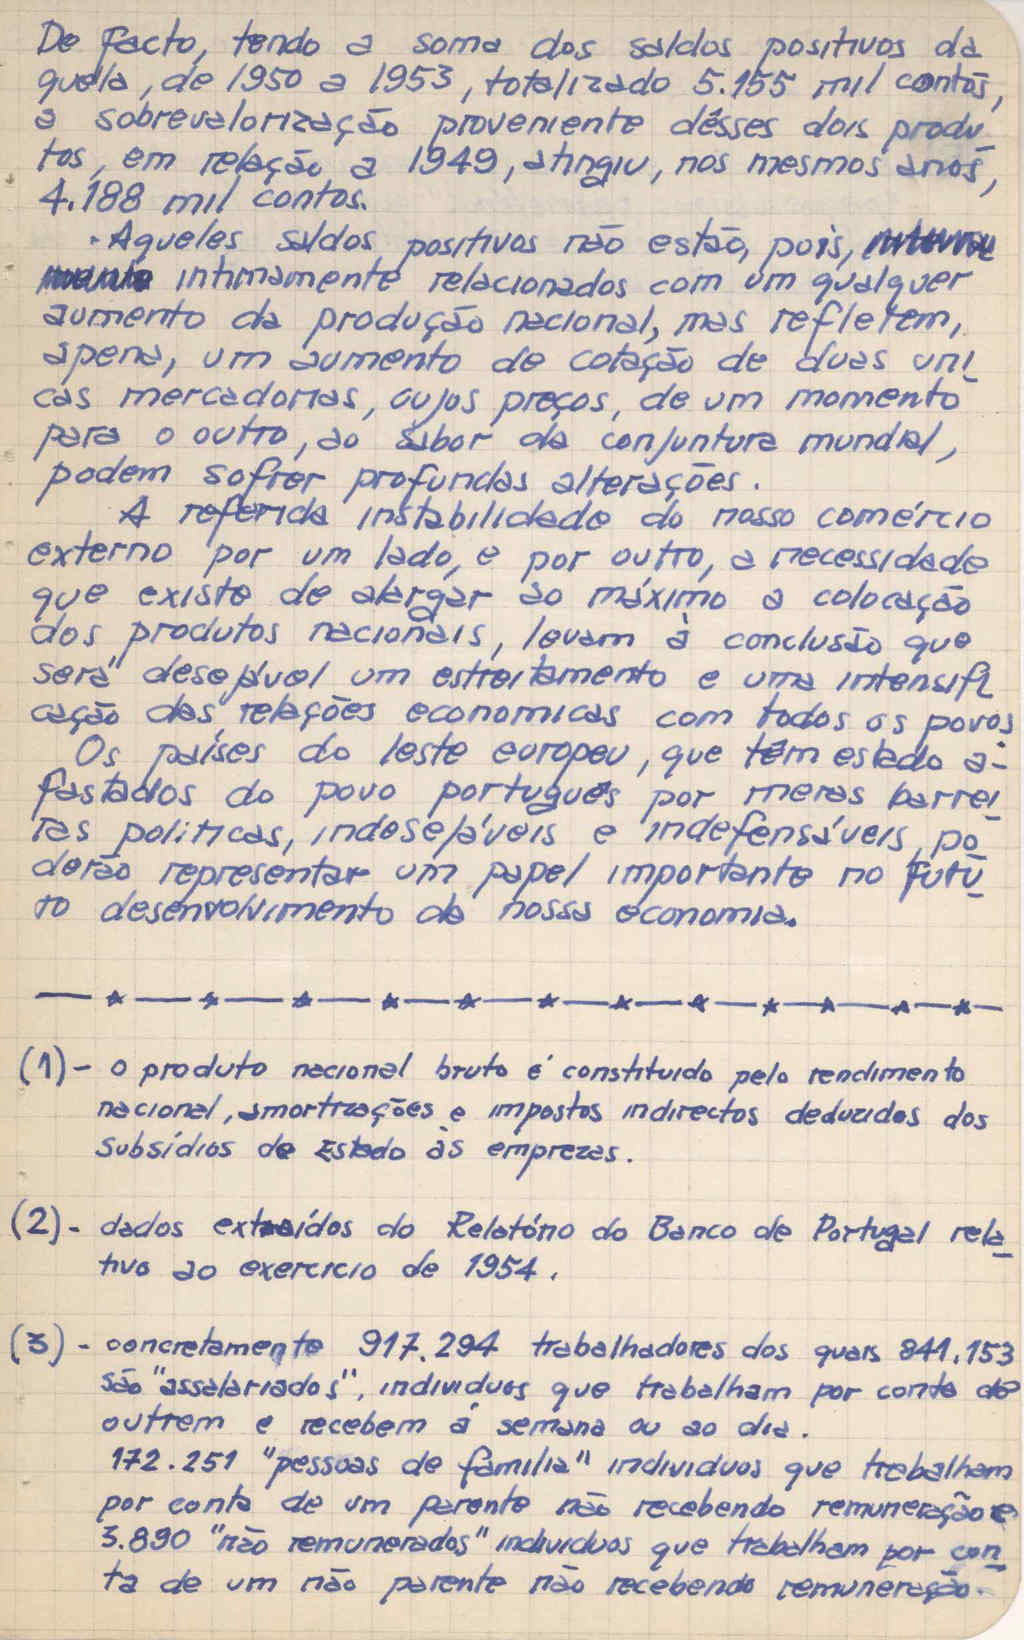 De facto, tendo a soma dos saldos positivos da
quela, de 1950 a 1953, totalizado 5.155 mil contos,
a sobrevalorização proveniente dêsses dois produ
tos, em relação a 1949, atingiu, nos mesmos anos,
4.188 mil contos.
Aqueles saldos positivos não estão, pois,
intimamente relacionados com um qualquer
aumento da produção nacional, mas refletem,
apena, um aumento de cotação de duas uni
cas mercadorias, cujos preços, de um momento
para o outro, ao sabor da conjuntura mundial,
podem sofrer profundas alterações.
A referida instabilidade do nosso comércio
externo por um lado, e por outro, a necessidade
que existe de alargar ao máximo a colocação
dos produtos nacionais, levam à conclusão que
será desejável um estreitamento e uma intensifi
cação das relações economicas com todos os povos
Os países do leste europeu, que têm estado a-
fastados do povo português por meras barrei
ras politicas, indesejáveis e indefensáveis, po
derão representar um papel importante no futu
ro desenvolvimento da nossa economia.
(1) - o produto nacional bruto é constituido pelo rendimento
nacional, amortizações e impostos indirectos deduzidos dos
subsídios do Estado às emprezas.
(2) - dados extraídos do Relatório do Banco de Portugal rela
tivo ao exercicio de 1954.
(3) - concretamente 917.294 trabalhadores dos quais 841.153
são "assalariados", individuos que trabalham por conta de
outrem e recebem á semana ou ao dia.
172.251 "pessoas de familia" individuos que trabalham
por conta de um parente não recebendo remuneração e
3.890 "não remunerados" individuos que trabalham por con
ta de um não parente não recebendo remuneração.